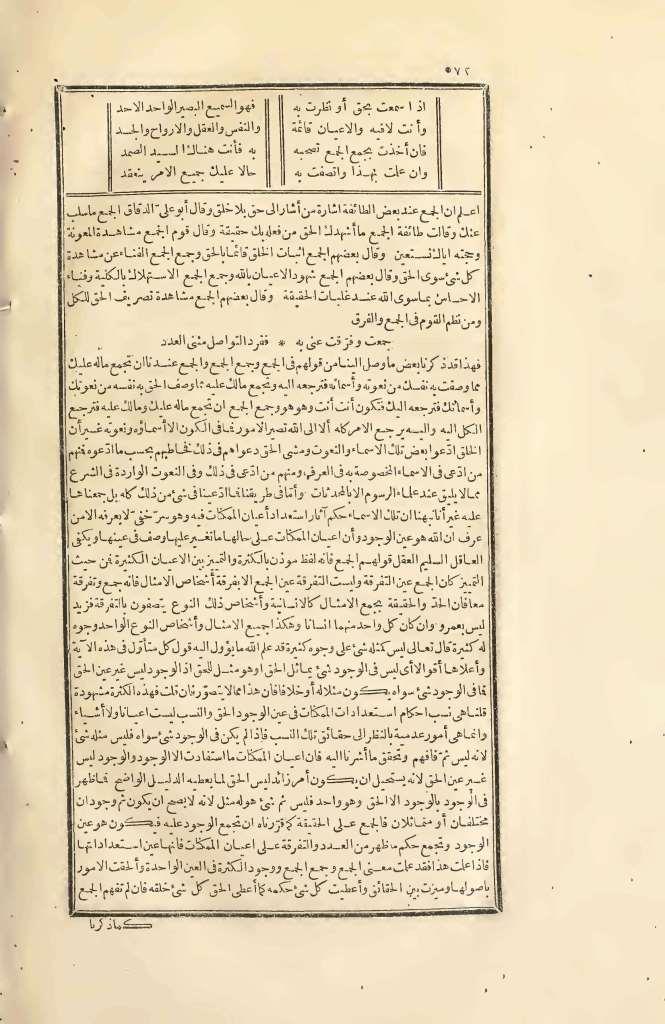 ٧٢
اذا سمعت بحق أو نظرت به فهو السميع البصير الواحد الاحد
وأنت لاقيه والاعيان قائمة والنفس والعقل والارواح والجسد
فان أخذت بجمع الجمع تصحبه به فأنت هناك السيد الصمد
وان علمت بهذا واتصفت به حالا عليك جميع الامر ينعقد
اعلم ان الجمع عند بعض الطائفة اشارة من أشار الى حق بلا خلق وقال أبو على الدقاق الجمع ما سلب
عنك وقالت طائفة الجمع ما أشهدك الحق من فعله بك حقيقة وقال قوم الجمع مشاهدة المعونة
وحجته اياك نستعين وقال بعضهم الجمع اثبات الخلق قائما بالحق وجمع الجمع الفناء عن مشاهدة
كل شئ سوى الحق وقال بعضهم الجمع شهود الاعيان بالله وجمع الجمع الاستهلاك بالكلية وفناء
الاحساس بما سوى الله عند غلبات الحقيقة وقال بعضهم الجمع مشاهدة تصريف الحق للكل
ومن نظم القوم فى الجمع والفرق
جمعت وفرقت عنى به * ففرد التواصل مثنى العدد
فهذا قد ذكرنا بعض ما وصل الينا من قولهم فى الجمع وجمع الجمع والجمع عندنا ان تجمع ماله عليك
مما وصفت به نفسك من نعوته وأسمائه فترجعه اليه وتجمع مالك عليه مما وصف الحق به نفسه من نعوتك
وأسمائك فترجعه اليك فتكون أنت أنت وهو هو وجمع الجمع ان تجمع ماله عليك ومالك عليه فترجع
الكل اليه واليه يرجع الامر كله ألا الى الله تصير الامور فما فى الكون الا أسماؤه ونعوته غير أن
الخلق ادّعوا بعض تلك الاسماء والنعوت ومشى الحق دعواهم فى ذلك فخاطبهم بحسب ما ادعوه فمنهم
من ادّعى فى الاسماء المخصوصة به فى العرف ومنهم من ادّعى فى ذلك وفى النعوت الواردة فى الشرع
مما لا يليق عند علماء الرسوم الا بالمحدثات وأما فى طريقنا فما ادّعينا فى شئ من ذلك كله بل جمعناها
عليه غير أنا نبهنا ان تلك الاسماء حكم آثار استعداد أعيان الممكنات فيه وهو سرّ خفىّ لا يعرفه الا من
عرف ان الله هو عين الوجود وأن اعيان الممكنات على حالها ما تغير عليها وصف فى عينها ويكفى
العاقل السليم العقل قولهم الجمع فانه لفظ موذن بالكثرة والتمييز بين الاعيان الكثيرة فمن حيث
التمييز كان الجمع عين التفرقة وليست التفرقة عين الجمع الا بفرقة أشخاص الامثال فانه جمع وتفرقة
معا فان الحدّ والحقيقة يجمع الامثال كالانسانية وأشخاص ذلك النوع يتصفون بالتفرقة فزيد
ليس بعمرو وان كان كل واحد منهما انسانا وهكذا جميع الامثال وأشخاص النوع الواحد وجوه
له كثيرة قال تعالى ليس كمثله شئ على وجوه كثيرة قد علم الله ما يؤول اليه قول كل متأوّل فى هذه الآية
وأعلاها أقوالا أى ليس فى الوجود شئ يماثل الحق اوهو مثل للحق اذ الوجود ليس غير عين الحق
فما فى الوجود شئ سواه يكون مثلا له أو خلافا فان هذا مما لا يتصوّر فان قلت فهذه الكثرة مشهودة
قلنا هى نسب احكام استعدادات الممكنات فى عين الوجود الحق والنسب ليست اعيانا ولا أشياء
وانما هى أمور عدمية بالنظر الى حقائق تلك النسب فاذا لم يكن فى الوجود شئ سواه فليس مثله شئ
لانه ليس ثمّ فافهم وتحقق ما أشرنا اليه فان اعيان الممكنات ما استفادت الا الوجود والوجود ليس
غير عين الحق لانه يستحيل ان يكون أمر زائد ليس الحق لما يعطيه الدليل الواضح فما ظهر
فى الوجود بالوجود الا الحق وهو واحد فليس ثم شئ هو له مثل لانه لا يصح ان يكون ثم وجودان
مختلفان أو متماثلان فالجمع على الحقيقة كما قررناه ان تجمع الوجود عليه فيكون هو عين
الوجود وتجمع حكم ما ظهر من العدد والتفرقة على اعيان الممكنات فانها عين استعداداتها
فاذا علمت هذا فقد علمت معنى الجمع وجمع الجمع ووجود الكثرة فى العين الواحدة وألحقت الامور
بأصولها وميزت بين الحقائق وأعطيت كل شئ حكمه كما أعطى الحق كل شئ خلقه فان لم تفهم الجمع
كما ذكرنا